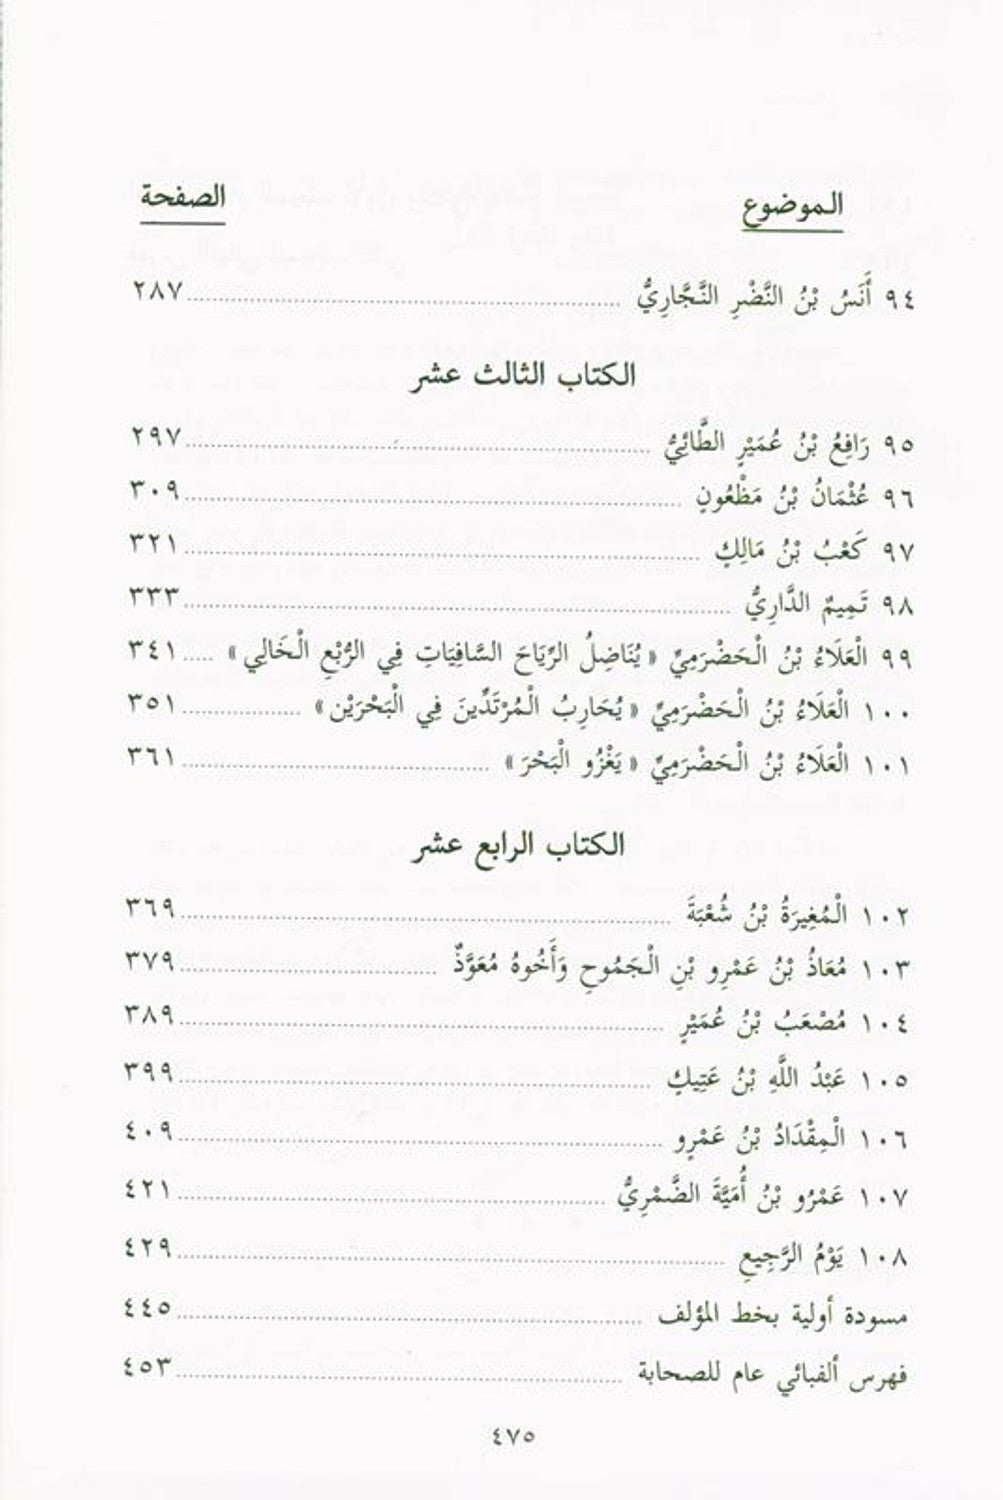 الموضوع الصفحة
٩٤ أَنَسُ بْنُ النَّضْرِ النَّجَّارِيُّ ........ ٢٨٧
الكتاب الثالث عشر
٩٥ رَافِعُ بْنُ عُمَيْرٍ الطَّائِيُّ ........ ٢٩٧
٩٦ عُثْمَانُ بْنُ مَظْعُونٍ ........ ٣٠٩
٩٧ كَعْبُ بْنُ مَالِكٍ ........ ٣٢١
٩٨ تَمِيمٌ الدَّارِيُّ ........ ٣٣٣
٩٩ الْعَلَاءُ بْنُ الْحَضْرَمِيِّ «يُنَاضِلُ الرِّيَاحَ السَّافِيَاتِ فِي الرُّبْعِ الْخَالِي» ..... ٣٤١
١٠٠ الْعَلَاءُ بْنُ الْحَضْرَمِيِّ «يُحَارِبُ الْمُرْتَدِّينَ فِي الْبَحْرَيْن» ........ ٣٥١
١٠١ الْعَلَاءُ بْنُ الْحَضْرَمِيِّ «يَغْزُو الْبَحْرَ» ........ ٣٦١
الكتاب الرابع عشر
١٠٢ الْمُغِيرَةُ بْنُ شُعْبَةَ ........ ٣٦٩
١٠٣ مُعَاذُ بْنُ عَمْرِو بْنِ الْجَمُوحِ وَأَخُوهُ مُعَوَّذٌ ........ ٣٧٩
١٠٤ مُصْعَبُ بْنُ عُمَيْرٍ ........ ٣٨٩
١٠٥ عَبْدُ اللَّهِ بْنُ عَتِيكٍ ........ ٣٩٩
١٠٦ الْمِقْدَادُ بْنُ عَمْرٍو ........ ٤٠٩
١٠٧ عَمْرُو بْنُ أُمَيَّةَ الضَّمْرِيُّ ........ ٤٢١
١٠٨ يَوْمُ الرَّجِيعِ ........ ٤٢٩
مسودة أولية بخط المؤلف ........ ٤٤٥
فهرس ألفبائي عام للصحابة ........ ٤٥٣
٤٧٥